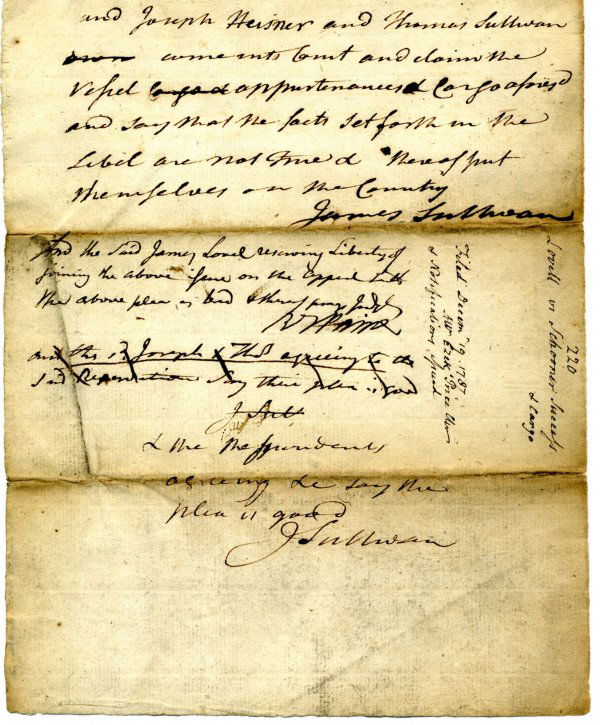 and Joseph Heisner and Thomas Sullivan
come into Court and claim the
Vessel appurtenances & Cargo afores'd
and say that the facts set forth in the
Libel are not true & thereof put
themselves on the Country
James Sullivan
And the said James Lovel reserving Liberty of
joining the above issue on the appeal saith
the above plea is bad & thereof prays Judg't
and the s'd Joseph & Tho's agreeing to
said Reservation say their plea is good
J Sull
& the Respondents
agreeing &c say the
plea is good
J Sullivan
Filed Decem' 19. 1787
Att' Ezek' Price Cler
& Notifications issued
220
Lovell vs Schooner Success
& Cargo